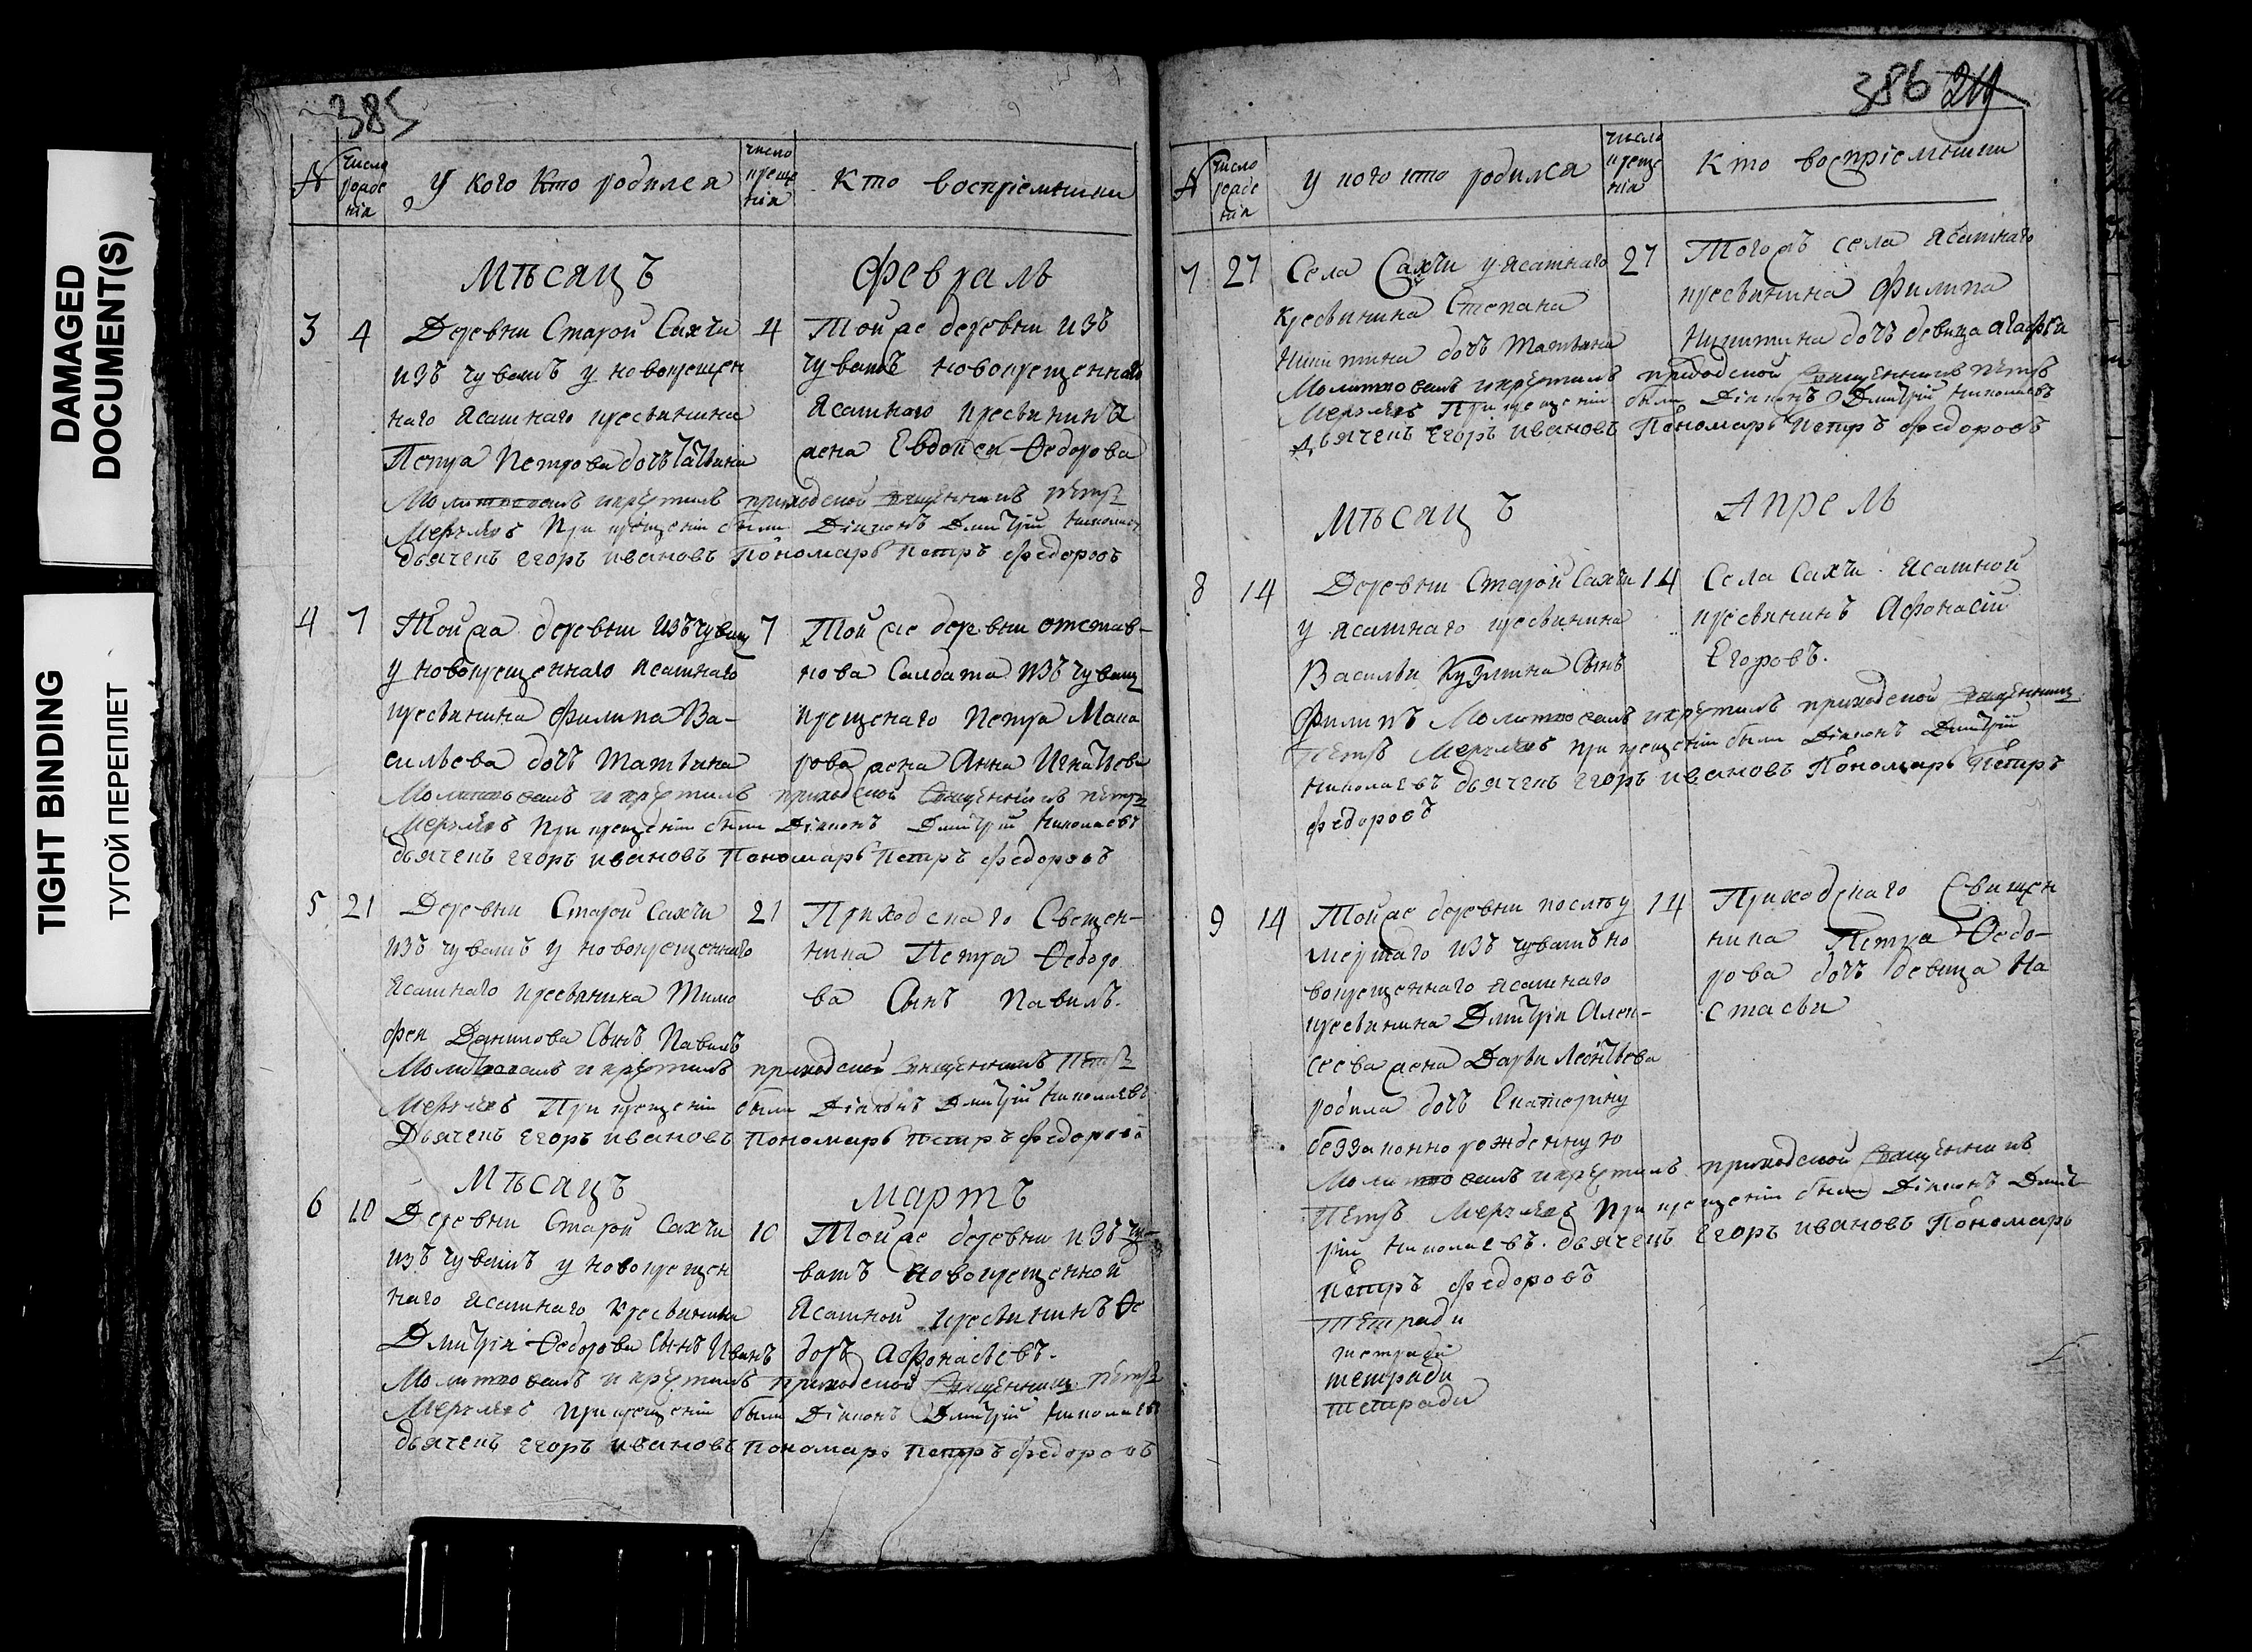 DAMAGED
DOCUMENT(S)
TIGHT BINDING
ТУГОЙ ПЕРЕПЛЕТ
385
№
число рожде нія
У кого кто родился
число креще нія
Кто воспріемники
Мѣсяцъ Февраль
3 4 Деревни Старой Сахчи
изъ чувашъ у новокрещен
наго ясашнаго кресьянина
Петра Петрова дочь Татьяна
4 Той же деревни изъ
чувашъ новокрещеннаго
ясашнаго кресьянина
жена Евдокея Ѳедорова
Молитвовалъ и крѣстилъ приходской священникъ Пѣтръ
При крещеніи были Діяконъ Дмитрій Николаевъ
дьячекъ Егоръ Ивановъ Пономарь Петръ Федоровъ
4 7 Той жа деревни изъ чуваш
у новокрещеннаго ясашнаго
кресьянина Филипа Ва-
сильева дочь Татьяна
7 Той же деревни отстав-
нова Салдата изъ чуваш
крещенаго Петра Мака
рова жена Анна Игнатьева
Молитвовалъ и крѣстилъ приходской священникъ Пѣтръ
при крещеніи были Діяконъ Дмитрій Николаевъ
дьячекъ Егоръ Ивановъ Пономарь Петръ Федоровъ
5 21 Деревни Старой Сахчи
изъ чувашъ у новокрещеннаго
ясашнаго кресьянина Тимо
фея Данилова сынъ Павилъ
21 Приходскаго Свещен-
ника Петра Ѳедоро
ва Сынъ Павилъ.
Молитвовалъ и крѣстилъ приходской священникъ Пѣтръ
При крещеніи были Діяконъ Дмитрій Николаевъ
Дьячекъ Егоръ Ивановъ Пономарь Петръ Федоровъ
Мѣсяцъ Мартъ
6 10 Деревни Старой Сахчи
изъ чувашъ у новокрещен
наго ясашнаго кресьянина
Дмитрія Ѳедорова сынъ Иванъ
10 Той же деревни изъ чу-
вашъ новокрещенной
ясашной кресьянинъ Ѳе
доръ Афонасьевъ.
Молитвовалъ и крѣстилъ приходской священникъ Пѣтръ
при крещеніи были Діяконъ Дмитрій Николаевъ
дьячекъ Егоръ Ивановъ Пономарь Петръ Федоровъ
386
№
число рожде нія
У кого кто родился
число креще нія
Кто воспріемники
7 27 Села Сахчи у ясашнаго
кресьянина Степана
Никитина дочь Татьяна
27 Тогожъ села ясашнаго
кресьянина Филипа
Никитина дочь девица Агафья
Молитвовалъ и крѣстилъ приходской священникъ Пѣтръ
При крещеніи были Діяконъ Дмитрій Николаевъ
Дьячекъ Егоръ Ивановъ Пономарь Петръ Федоровъ
Мѣсяцъ Апрель
8 14 Деревни Старой Сахчи
у ясашнаго кресьянина
Василья Кузмина Сынъ
Филипъ
14 Села Сахчи ясашной
кресьянинъ Афонасій
Егоровъ.
Молитвовалъ и крѣстилъ приходской священникъ
Пѣтръ при крещеніи были Діяконъ Дмитрій
Николаевъ дьячекъ Егоръ Ивановъ Пономарь Петръ
Федоровъ
9 14 Той же деревни послѣ у
мершаго изъ чувашъ но
вокрещеннаго ясашнаго
кресьянина Дмитрія Алек-
сеева жена Дарья Леонтьева
родила дочь Екатерину
беззаконно рожденную
14 Приходскаго Священ
ника Петра Ѳедо-
рова дочь девица На
стасья
Молитвовалъ и крѣстилъ приходской священникъ
Пѣтръ при крещеніи были Діяконъ Дмит-
рій Николаевъ. дьячекъ Егоръ Ивановъ Пономарь
Петръ Федоровъ
тетради
тетради
тетради
тетради